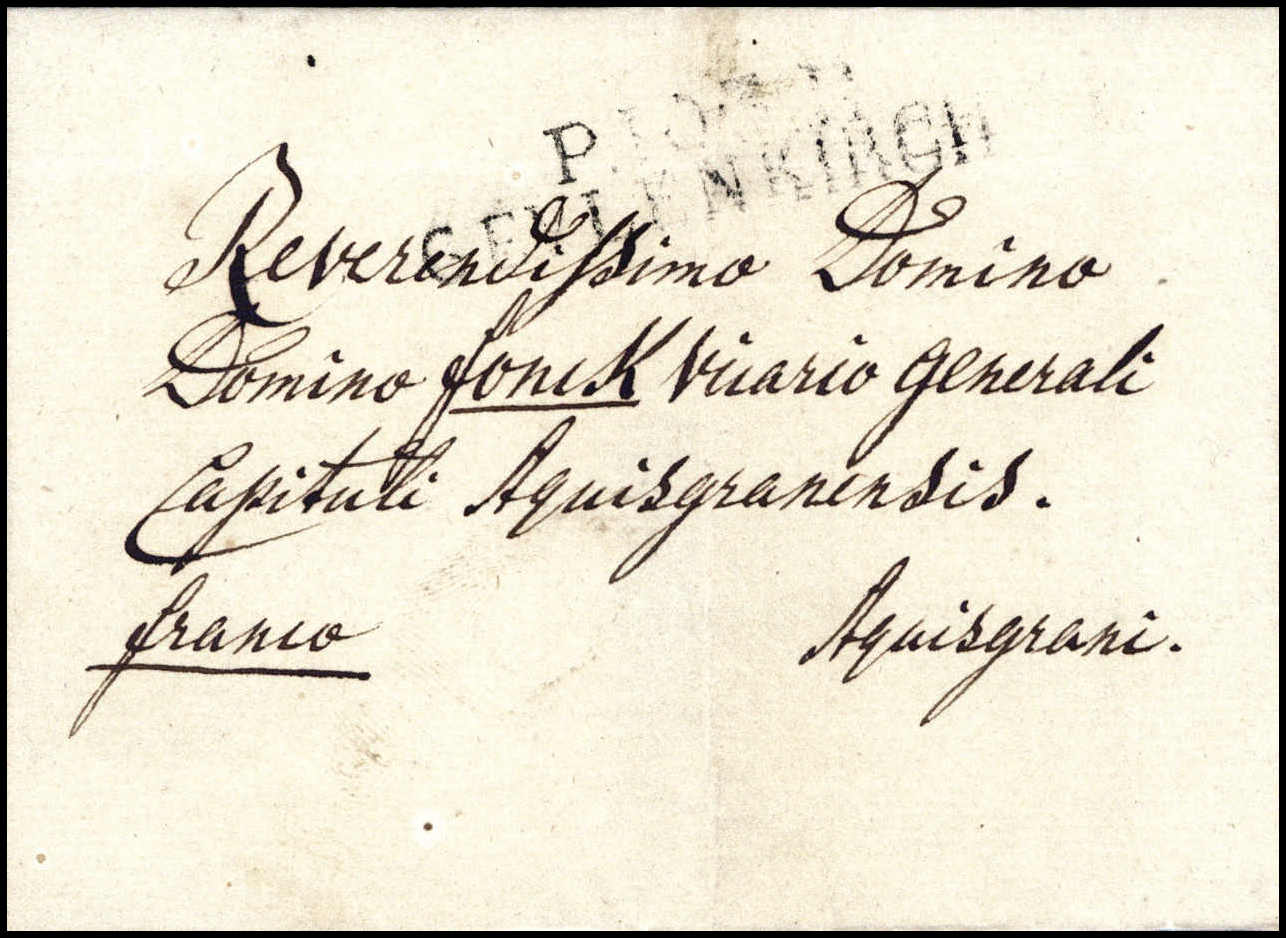 P.103.P.
GEILENKIRCH
Reverendissimo Domino
Domino fonck Vicario generali
Capituli Aquisgranensis.
franco
Aquisgrani.